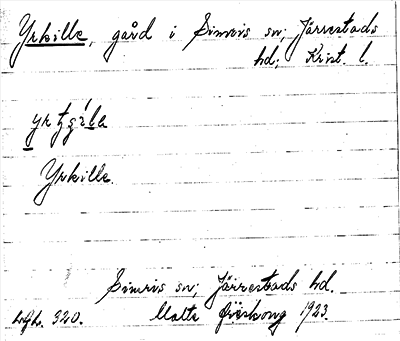 Yrkille, gård i Simris sn; Järrestads
hd; Krist. l.
Yrkille.
Simris sn; Järrestads hd.
320. Malte 1923.